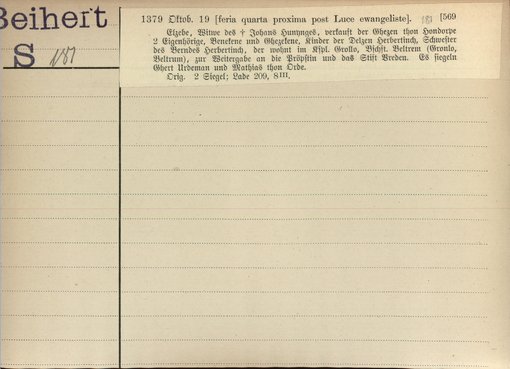 Beihert
S 181
1379 Oktob. 19 [feria quarta proxima post Luce ewangeliste]. 181 [569
Elzebe, Witwe des † Johans Hunynges, verkauft der Ghezen thon Hondorpe
2 Eigenhörige, Benekene und Ghezekene, Kinder der Delzen Herbertinch, Schwester
des Berndes Herbertinch, der wohnt im Kspl. Grollo, Bschft. Beltrem (Gronlo,
Beltrum), zur Weitergabe an die Pröpstin und das Stift Vreden. Es siegeln
Ghert Urdeman und Mathias thon Orde.
Orig. 2 Siegel; Lade 209, 8III.